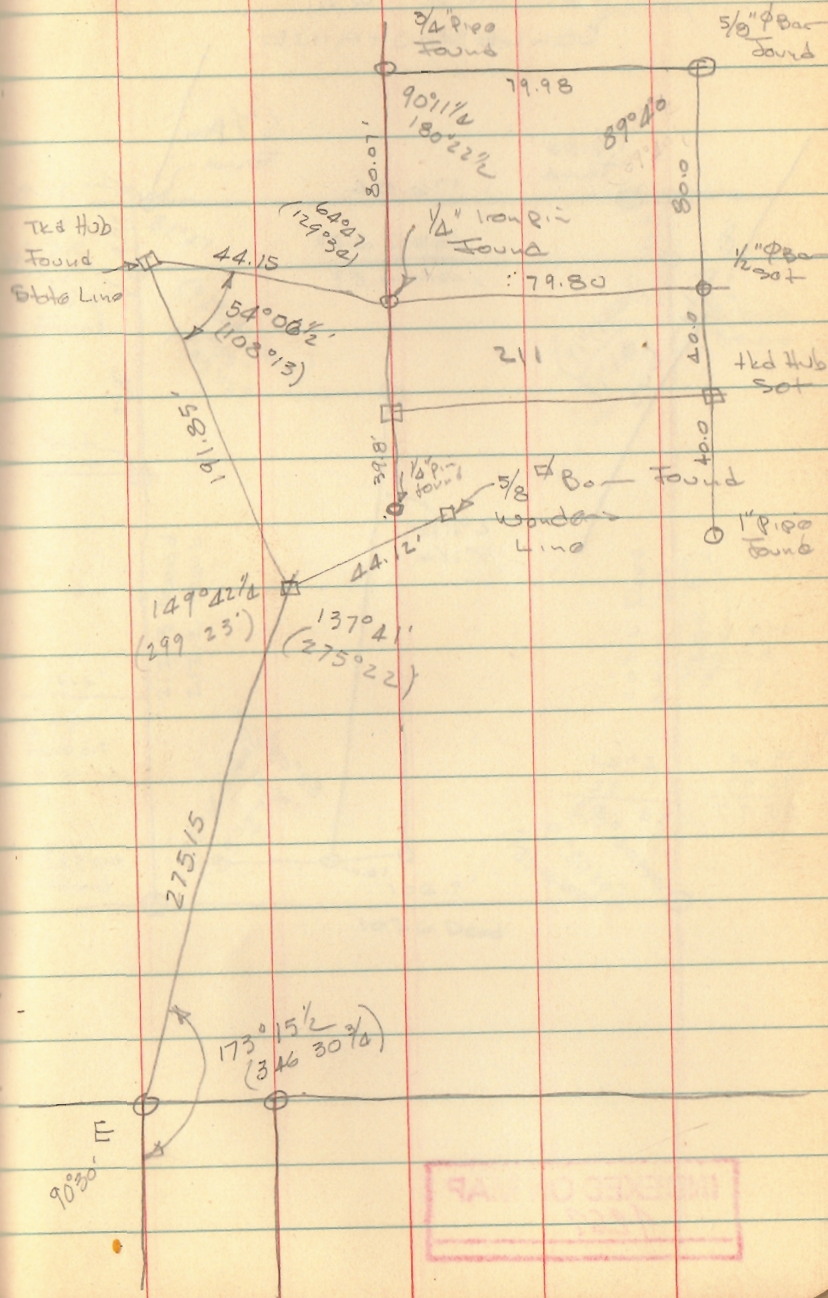 3/4" Pipe
Found
5/8" Φ Bar
found
79.98
90°11 1/4
180°22 1/2
89°40
80.07'
80.0
64°47
(129°34)
1/4" Iron pin
Found
Tkd Hub
Found
State Line
44.15
1/2" Φ Bar
Set
79.80
54°06 1/2'
(108°13)
211
40.0
tkd Hub
Set
191.85'
39.8'
1/4" pin
found
40.0
5/8 Bar Found
Line
1" Pipe
found
44.12'
149°42 1/4
(299 23')
137°41'
(275°22)
275.15
173° 15 1/2
(346 30 3/4)
E
90°30'
INDEXED ON MAP